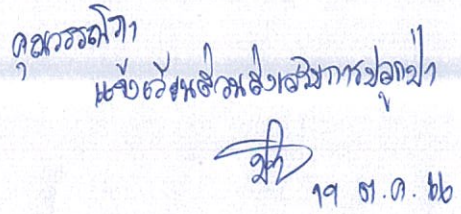 คุณวรรณวิภา
แจ้งเวียนส่วนส่งเสริมการปลูกป่า
19 ต.ค. 66